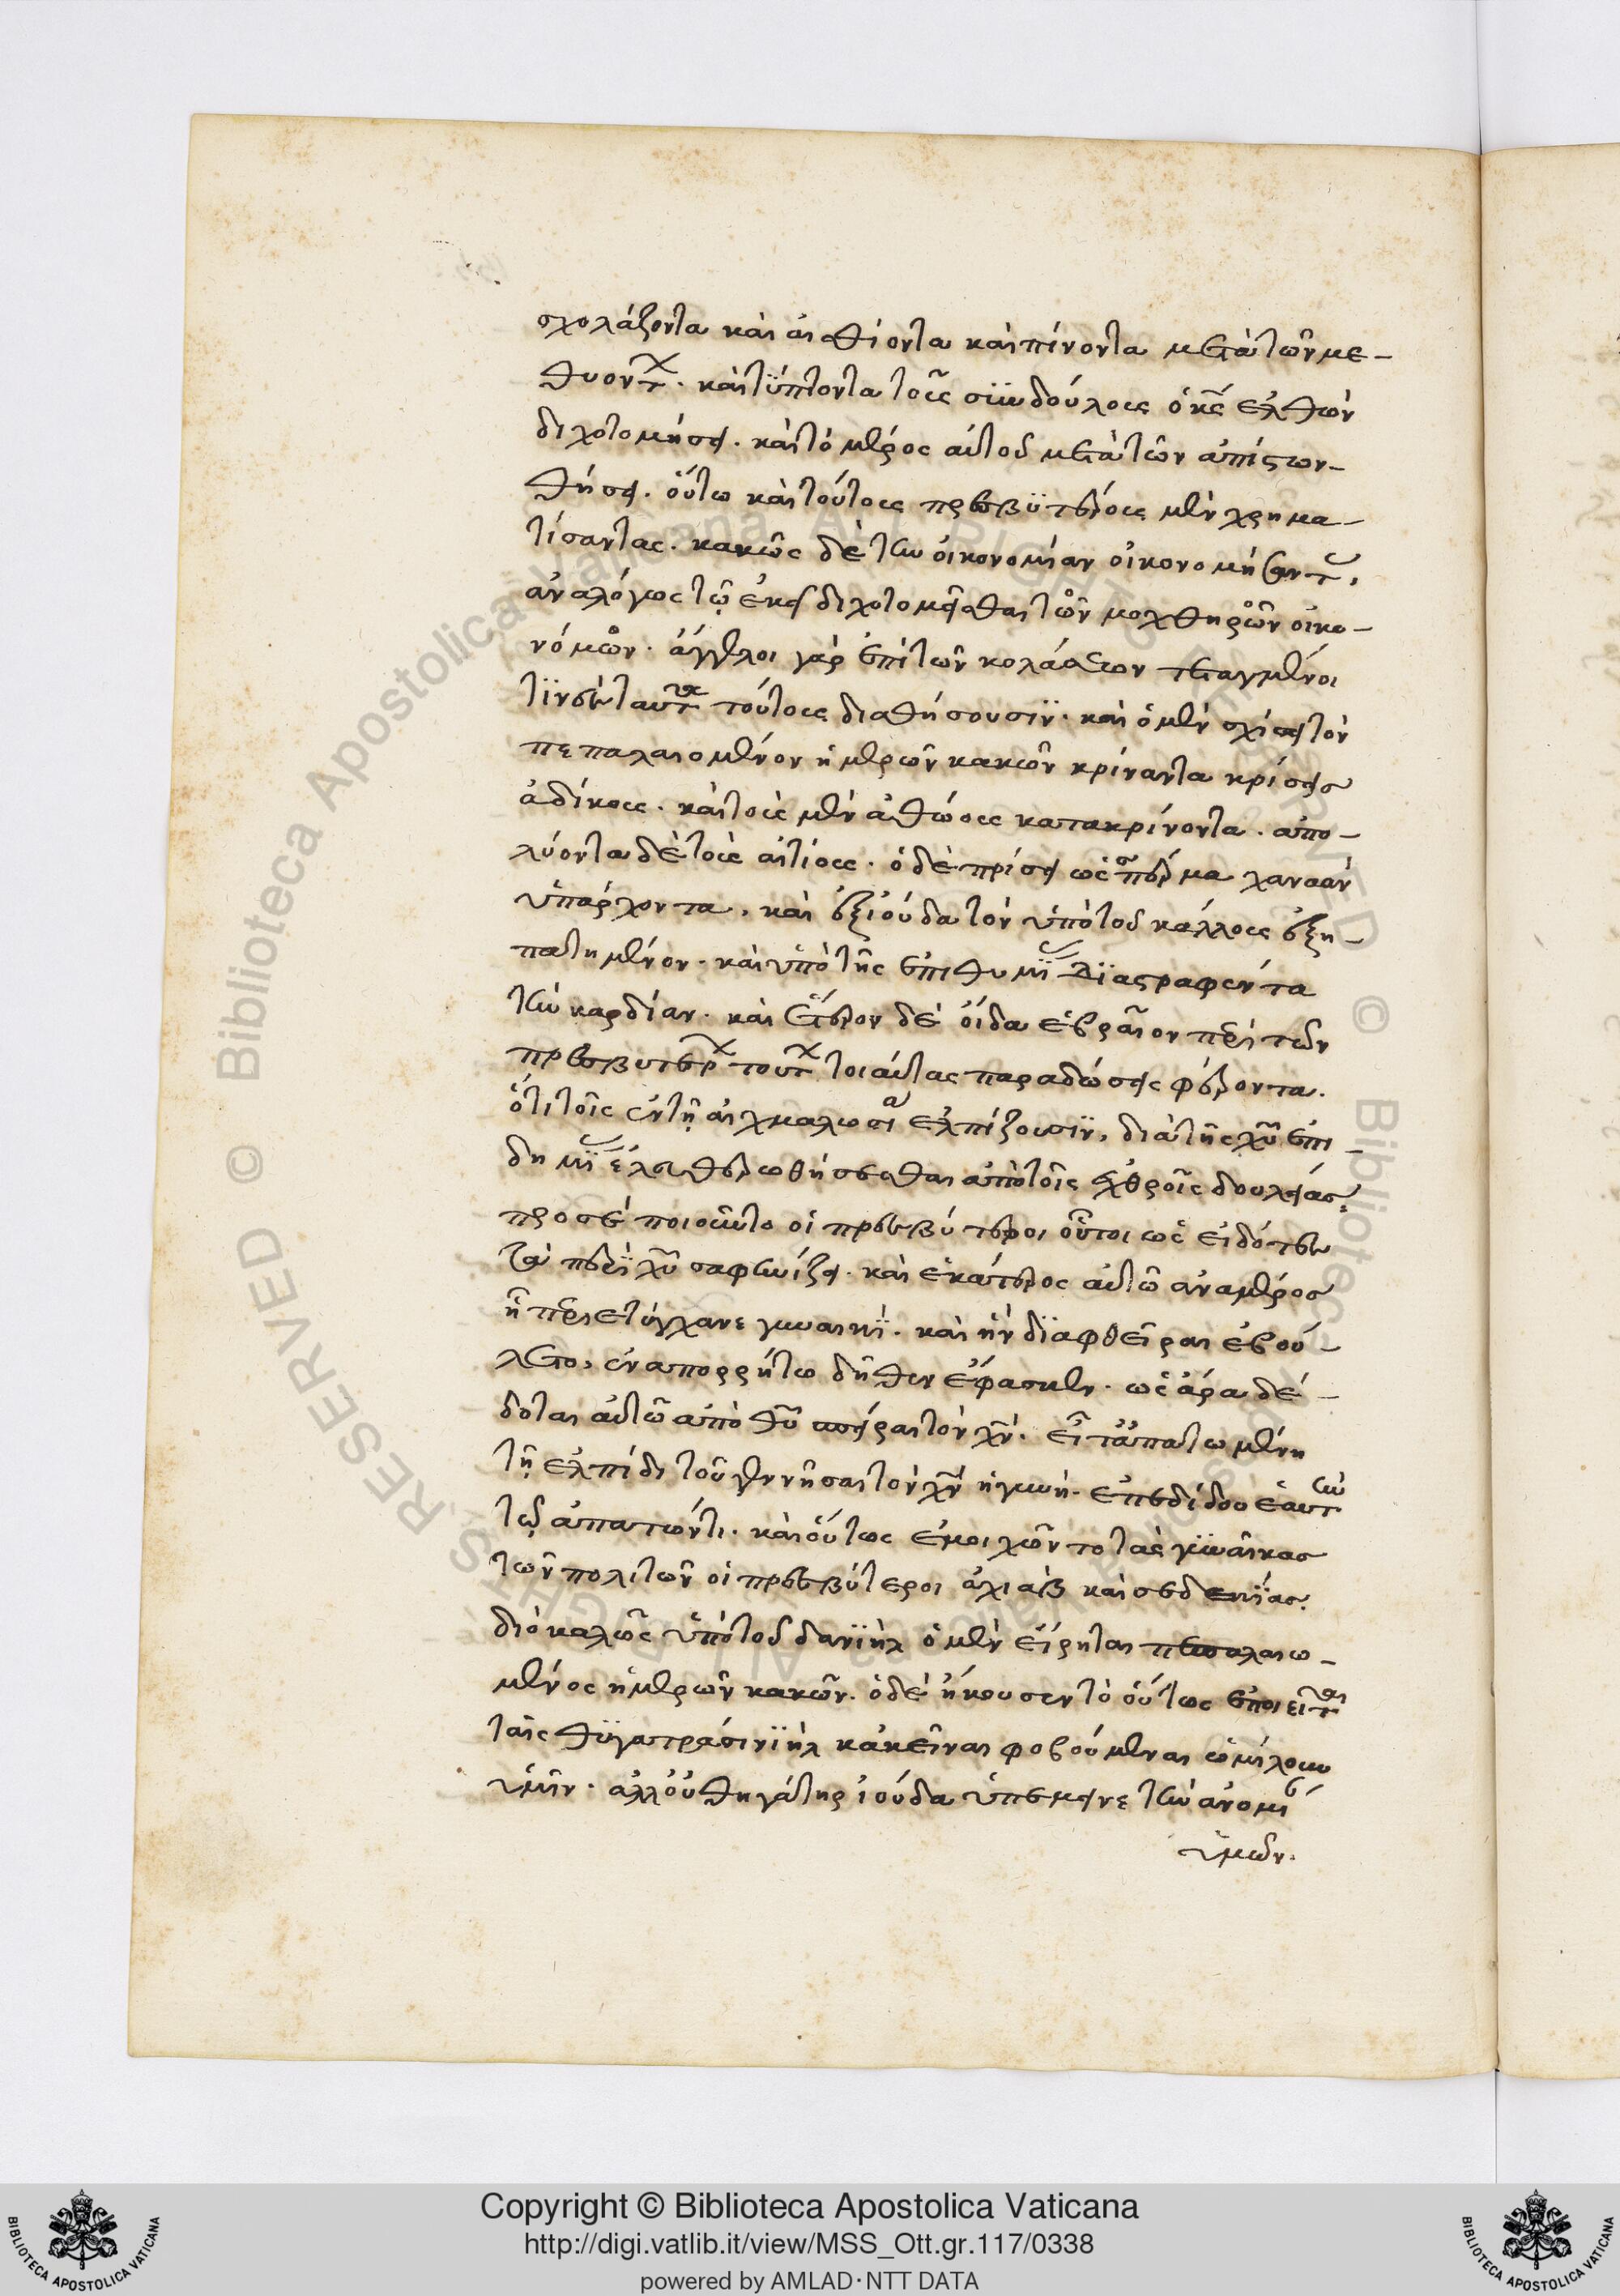 σχολάζοντα καὶ ἐσθίοντα καὶ πίνοντα μετὰ τῶν με-
θυόντ. καὶ τύπτοντα τοὺς συνδούλους ὁ κς ἐλθὼν
διχοτομήσει. καὶ τὸ μέρος αὐτοῦ μετὰ τῶν ἀπίστων-
θήσει. οὕτω καὶ τούτους πρεσβυτέρους μὲν χρημα-
τίσαντας. κακῶς δὲ τὴν οἰκονομίαν οἰκονομήσαντ.
ἀναλόγως τῷ ἐκεῖ διχοτομεῖσθαι τῶν μοχθηρῶν οἰκο-
νόμων. ἄγγελοι γὰρ ἐπὶ τῶν κολάσεων τεταγμένοι
τούτους διαθήσουσιν. καὶ ὁ μὲν σχίσει τὸν
πεπαλαιομένον ἡμερῶν κακῶν κρίναντα κρίσεις
ἀδίκους. καὶ τοὺς μὲν ἀθώους κατακρίνοντα. ἀπο-
λύοντα δὲ τοὺς αἰτίους. ὁ δὲ πρίσει ὡς σπέρμα χαναὰν
ὑπάρχοντα. καὶ ἐξ ἰούδα τὸν ὑπὸ τοῦ κάλλους ἐξη-
πατημένον. καὶ ὑπὸ τῆς ἐπιθυμί διαστραφέντα
τὴν καρδίαν. καὶ ἕτερον δὲ οἶδα ἑβραῖον περὶ τῶν
πρεσβυτέρ τούτ τοιαύτας παραδώσεις φέροντα.
ὅτι τοῖς ἐν τῇ αἰχμαλωσία ἐλπίζουσιν, διὰ τῆς χυ ἐπι-
δημί ἐλευθερωθήσεσθαι ἀπὸ τοῖς ἐχθροῖς δουλείας.
προσεποιοῦντο οἱ πρεσβύτεροι οὗτοι ὡς εἰδότες
τὰ περὶ χυ σαφηνίζει. καὶ ἑκάτερος αὐτῶ ἀναμέρος
ἧ περιετύγχανε γυναικὶ. καὶ ἣν διαφθεῖραι ἐβού-
λετο, ἐν ἀπορρήτω δῆθεν ἔφασκεν. ὡς ἄρα δέ-
δοται αὐτῶ ἀπὸ θυ σπεῖραι τὸν χν. εἶτ' ἀπατωμένη
τῇ ἐλπίδι τοῦ γεννῆσαι τὸν χν ἡ γυνὴ. ἐπεδίδου ἑαυτὴν
τῷ ἀπατῶντι. καὶ οὕτως ἐμοιχῶντο τὰς γυναῖκας
τῶν πολιτῶν οἱ πρεσβύτεροι ἀχιὰβ καὶ σεδεκίας.
διὸ καλῶς ὑπὸ τοῦ δανιὴλ ὁ μὲν εἴρηται πεπαλαιω-
μένος ἡμερῶν κακῶν. ὁ δὲ ἤκουσεν τὸ οὕτως ἐποιεῖτε
ταῖς θυγατράσιν ιηλ κἀκεῖναι φοβούμεναι ὡμίλουν
ὑμῖν. ἀλλ' οὐ θηγάτηρ ἰούδα ὑπέμεινε τὴν ἀνομί
ὑμῶν.